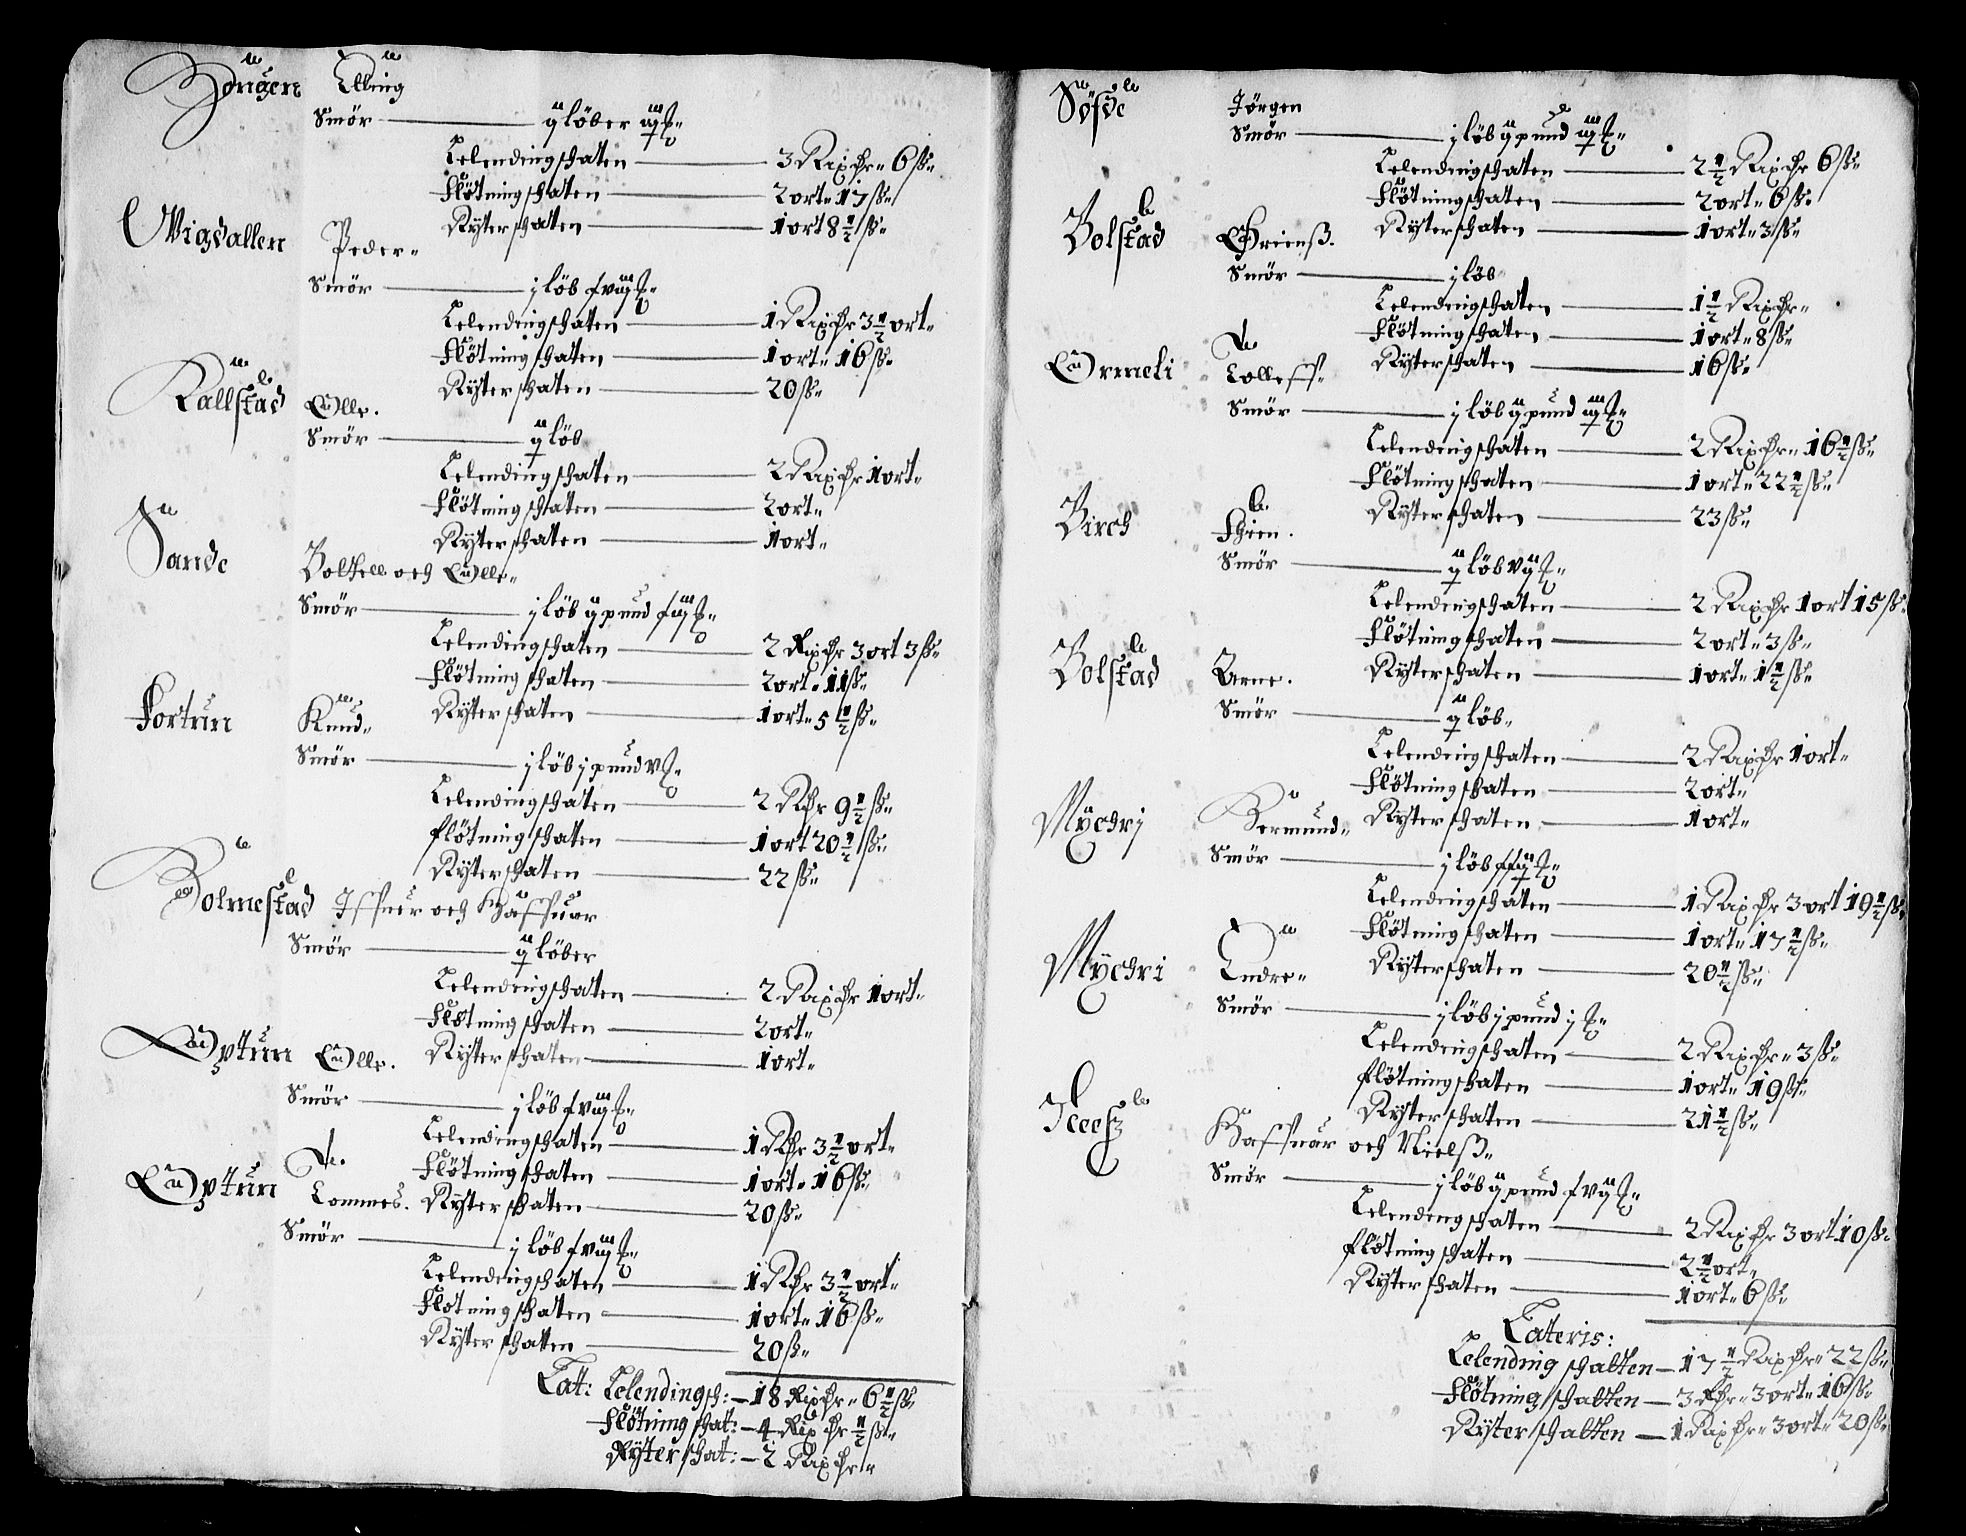 Bongen Elling
Smör — ij löber iij
Lelendingschaten — 3 Rixchr 6 ß
Flötningschaten — 2 ort 17 ß
Ryterschaten — 1 ort 8 1/2 ß
Wigdallen Peder
Smör — j löb
Lelendingschaten — 1 Rixchr 3 1/2 ort
Flötningschaten — 1 ort 16 ß
Ryterschaten — 20 ß
Kallstad Olle.
Smör — ij löb
Lelendingschaten — 2 Rixchr 1 ort
Flötningschaten — 2 ort
Ryterschaten — 1 ort
Sande Boltell och Olle
Smör — j löb ij pund
Lelendingschaten — 2 Rixchr 3 ort 3 ß
Flötningschaten — 2 ort 11 ß
Ryterschaten — 1 ort 5 1/2 ß
Fortun Knud
Smör — j löb j pund v
Lelendingschaten — 2 Rchr 9 1/2 ß
flötningschaten — 1 ort 20 1/2 ß
Ryterschaten — 22 ß
Bolmestad Iffuer och Haffuar
Smör — ij löber
Lelendingschaten — 2 Rixchr 1 ort
Flötningschaten — 2 ort
Ryterschaten — 1 ort
Optun Olle.
Smör — j löb
Lelendingschaten — 1 Rchr 3 1/2 ort
Flötningschaten — 1 ort 16 ß
Ryterschaten — 20 ß
Optun Tommes.
Smör — j löb
Lelendingschaten — 1 Rchr 3 1/2 ort
Flötningschaten — 1 ort 16 ß
Ryterschaten — 20 ß
Lat: Lelendingsch: — 18 Rixchr 6 1/2 ß
Flötningschat: — 4 Rixchr 1/2 ß
Ryterschat: — 2 Rixchr
Söfde Jörgen
Smör — j löb ij pund iij
Lelendingschaten — 2 1/2 Rixchr 6 ß
Flötningschaten — 2 ort 6 ß
Ryterschaten — 1 ort 3 ß
Bolstad
Smör — j löb
Lelendingschaten — 1 1/2 Rixchr
Flötningschaten — 1 ort 8 ß
Ryterschaten — 16 ß
Ormeli Tolleff
Smör — j löb ij pund iij
Lelendingschaten — 2 Rixchr 16 1/2 ß
Flötningschaten — 1 ort 22 1/2 ß
Ryterschaten — 23 ß
Birch
Smör — ij löb
Lelendingschaten — 2 Rixchr 1 ort 15 ß
Flötningschaten — 2 ort 3 ß
Ryterschaten — 1 ort 1 1/2 ß
Bolstad Arne.
Smör — ij löb
Lelendingschaten — 2 Rixchr 1 ort
Flötningschaten — 2 ort
Ryterschaten — 1 ort
Mychrj Germund
Smör — j löb
Lelendingschaten — 1 Rixchr 3 ort 19 1/2 ß
Flötningschaten — 1 ort 17 1/2 ß
Ryterschaten — 20 1/2 ß
Mychri Endre
Smör — j löb j pund j
Lelendingschaten — 2 Rixchr 3 ß
flötningschaten — 1 ort 19 ß
Ryterschaten — 21 1/2 ß
Haffuar och Nielß
Smör — j löb ij pund
Lelendingschaten — 2 Rixchr 3 ort 10 ß
flötningschaten — 2 1/2 ort
Ryterschaten — 1 ort 6 ß
Lateris:
Lelendingschatten — 17 1/2 Rixchr 22 ß
Flötningschatten — 3 Rchr 3 ort 16 ß
Ryterschatten — 1 Rixchr 3 ort 20 ß